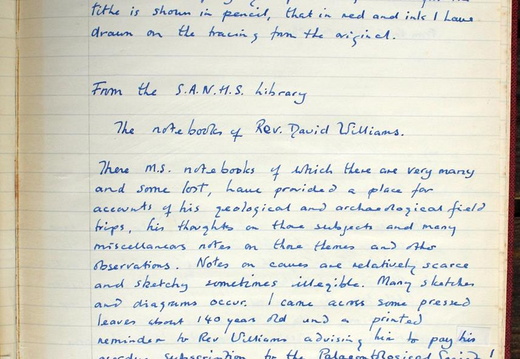 tithe is shown in pencil, that in red and ink I have
drawn on the tracing from the original.
From the S.A.N.H.S. Library
The notebooks of Rev. David Williams.
These M.S. notebooks of which there are very many
and some lost, have provided a place for
accounts of his geological and archaeological field
trips, his thoughts on those subjects and many
miscellaneous notes on those themes and other
observations. Notes on caves are relatively scarce
and sketchy sometimes illegible. Many sketches
and diagrams occur. I came across some pressed
leaves about 140 years old and a printed
reminder to Rev Williams advising him to pay his
subscription to the Palaeontological Society!